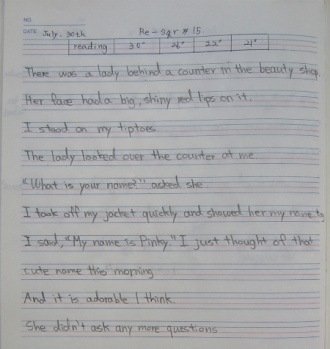 NO
DATE July. 30th Re-sgr #15
reading 30" 26" 22" 21"
There was a lady behind a counter in the beauty shop
Her face had a big, shiny red lips on it.
I stood on my tiptoes
The lady looked over the counter at me
"What is your name?" asked she
I took off my jacket quickly and showed her my name
I said, "My name is Pinky." I just thought of that
cute name this morning
And it is adorable I think.
She didn't ask any more questions